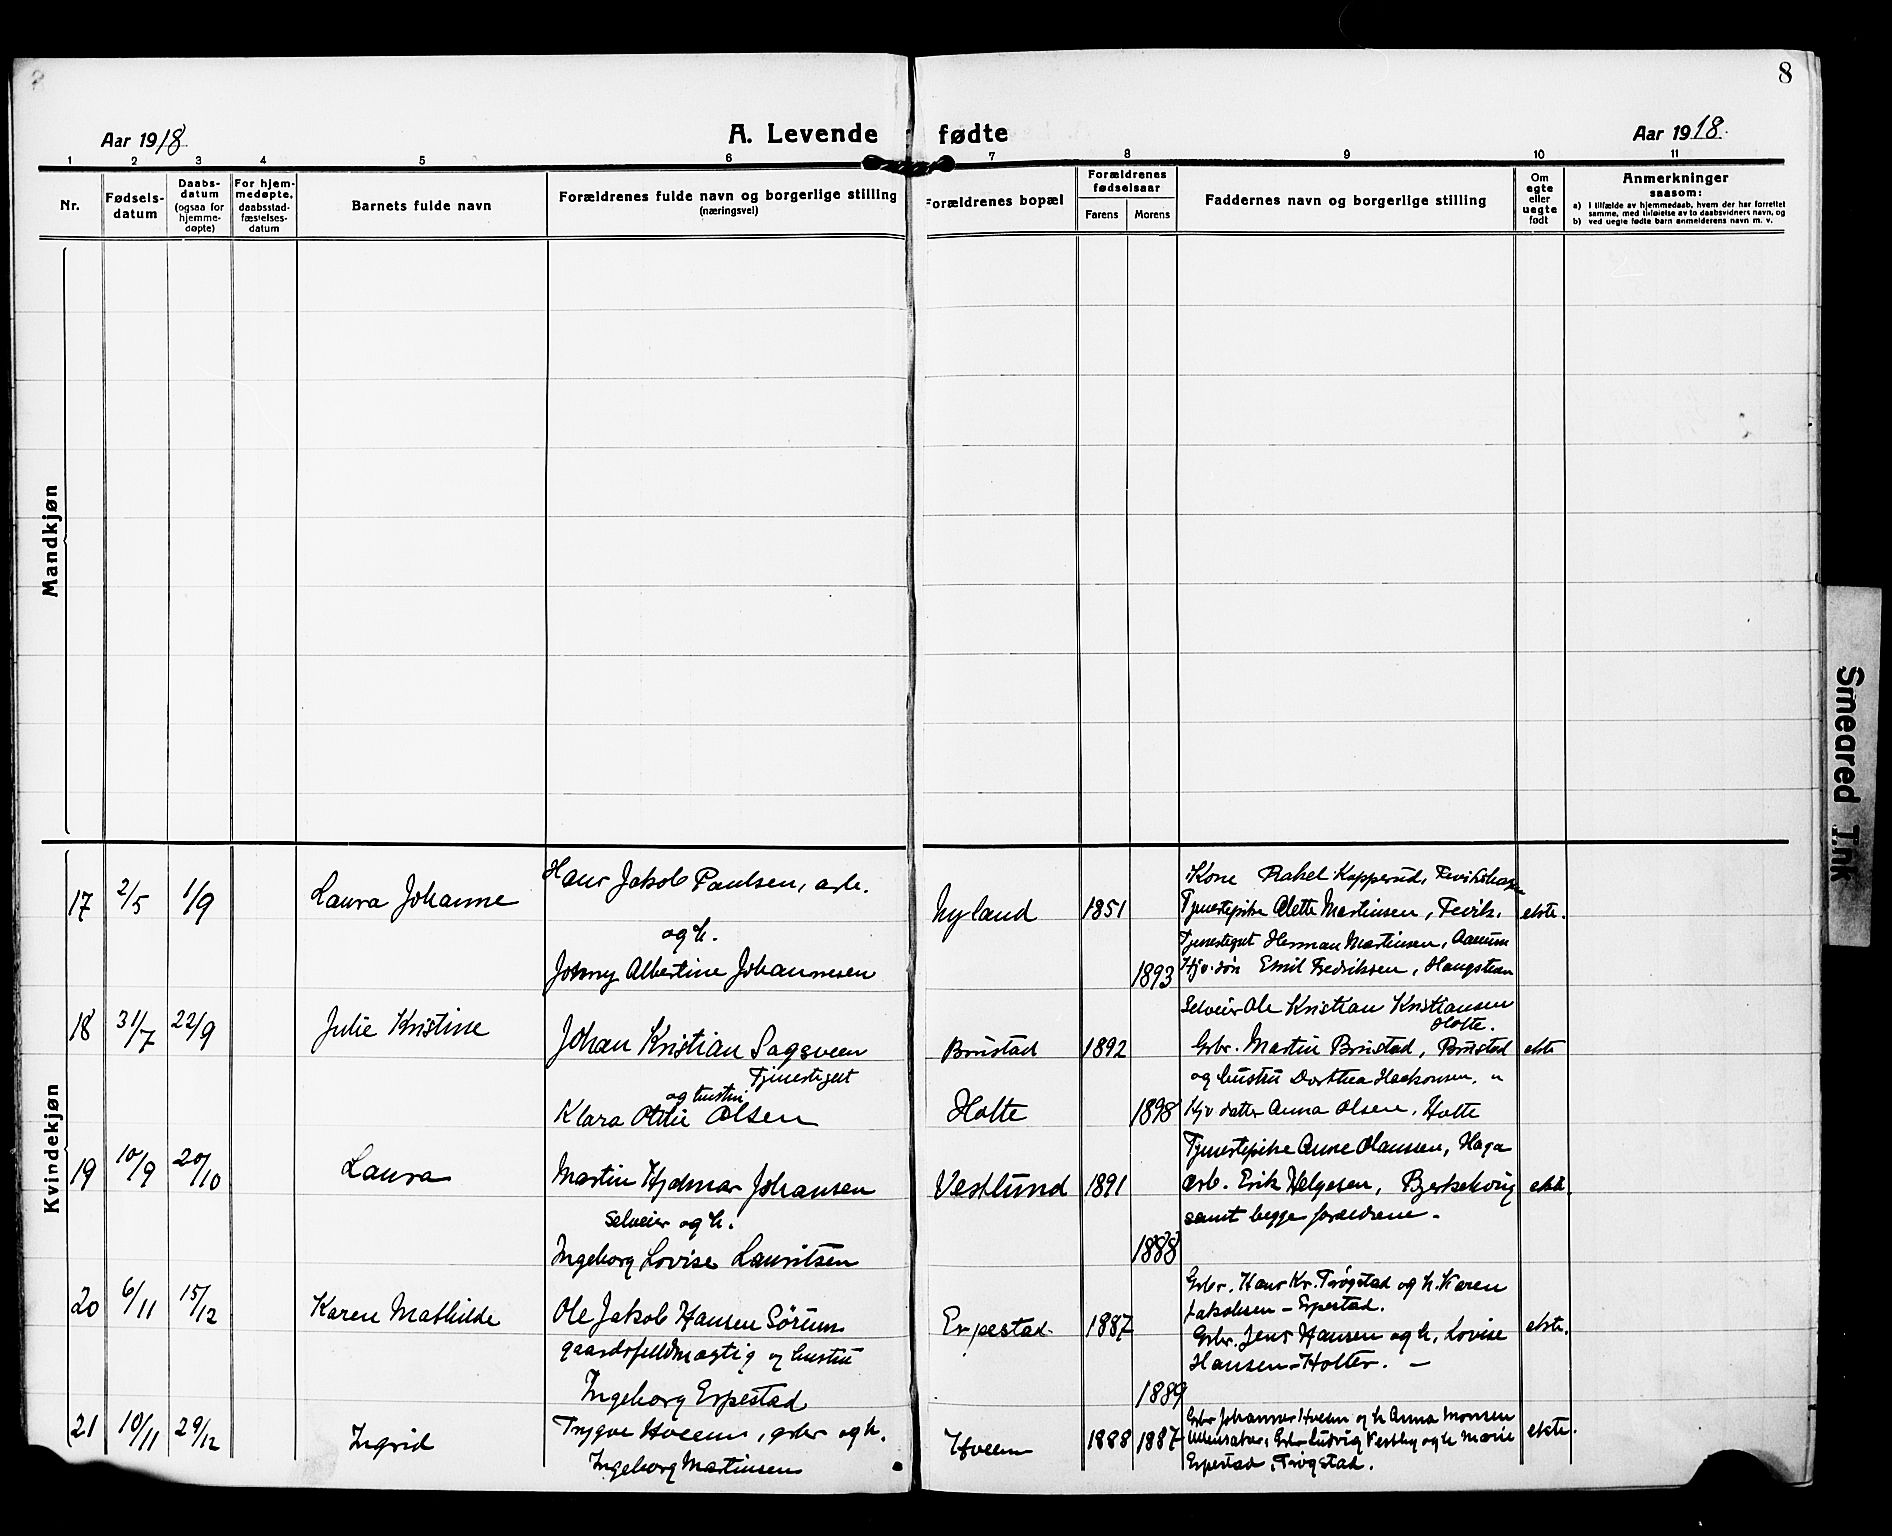 8
Aar 1918.
A. Levende fødte
Aar 1918.
1 2 3 4 5 6 7 8 9 10 11
Nr.
Fødsels-
datum
Daabs-
datum
(ogsaa for
hjemme-
døpte)
For hjem-
medøpte,
daabsstad-
fæstelses-
datum
Barnets fulde navn
Forældrenes fulde navn og borgerlige stilling
(næringsvei)
Forældrenes bopæl
Forældrenes
fødselsaar
Farens
Morens
Faddernes navn og borgerlige stilling
Om
egte
eller
uegte
født
Anmerkninger
saasom:
a) I tilfælde av hjemmedaab, hvem der har forrettet
samme, med tilføielse av to daabsvidners navn, og
b) ved uegte fødte barn anmelderens navn m. v.
Mandkjøn
Kvindekjøn
17 2/5 1/9 Laura Johanne
Hans Jakob Paulsen, arb.
og h.
Johanna Albertine Johannesen
Nyland 1851
1893
Kone Rakel Kopperud,
Tjenestepike Alette Martinsen, Fevik.
Tjenestegut Herman Martinsen,
Hjv. søn Emil Fredriksen, Haugstean
ekte.
18 31/7 22/9 Julie Kristine
Johan Kristian Sagsveen
Tjenestegut
og hustru
Klara Otilie Olsen
Brustad 1892
Holte 1898
Selveier Ole Kristian Kristiansen
Holte.
Grbr. Martin Brustad, Brustad
og hustru Dorthea Haakonsen, "
Hjv datter Anna Olsen, Holte
ekte
19 10/9 20/10 Laura
Martin Hjalmar Johansen
selveier og h.
Ingeborg Lovise Lauritsen
Vestlund 1891
1888
Tjenestepike Anne Olaussen, Haga
Arb. Erik Helgesen,
samt begge forældrene -
ekte.
20 6/11 15/12 Karen Mathilde
Ole Jakob Hansen Sørum
gaardsfuldmægtig og hustru
Ingeborg Erpestad
Erpestad. 1887
1889
Grbr. Hans Kr. Trøgstad og h. Karen
Jakobsen - Erpestad.
Grbr. Jens Hansen og h. Lovise
Hansen - Holter. -
ekte.
21 10/11 29/12 Ingrid
Trygve Hveem, grbr og h.
Ingeborg Martinsen
Hveem 1888 1887
Grbr Johannes Hveem og h Anna Monsen
Ullensaker, Grbr Ludvig Vestby og h Marie
Erpestad, Trøgstad.
ekte.
Smeared I.hk